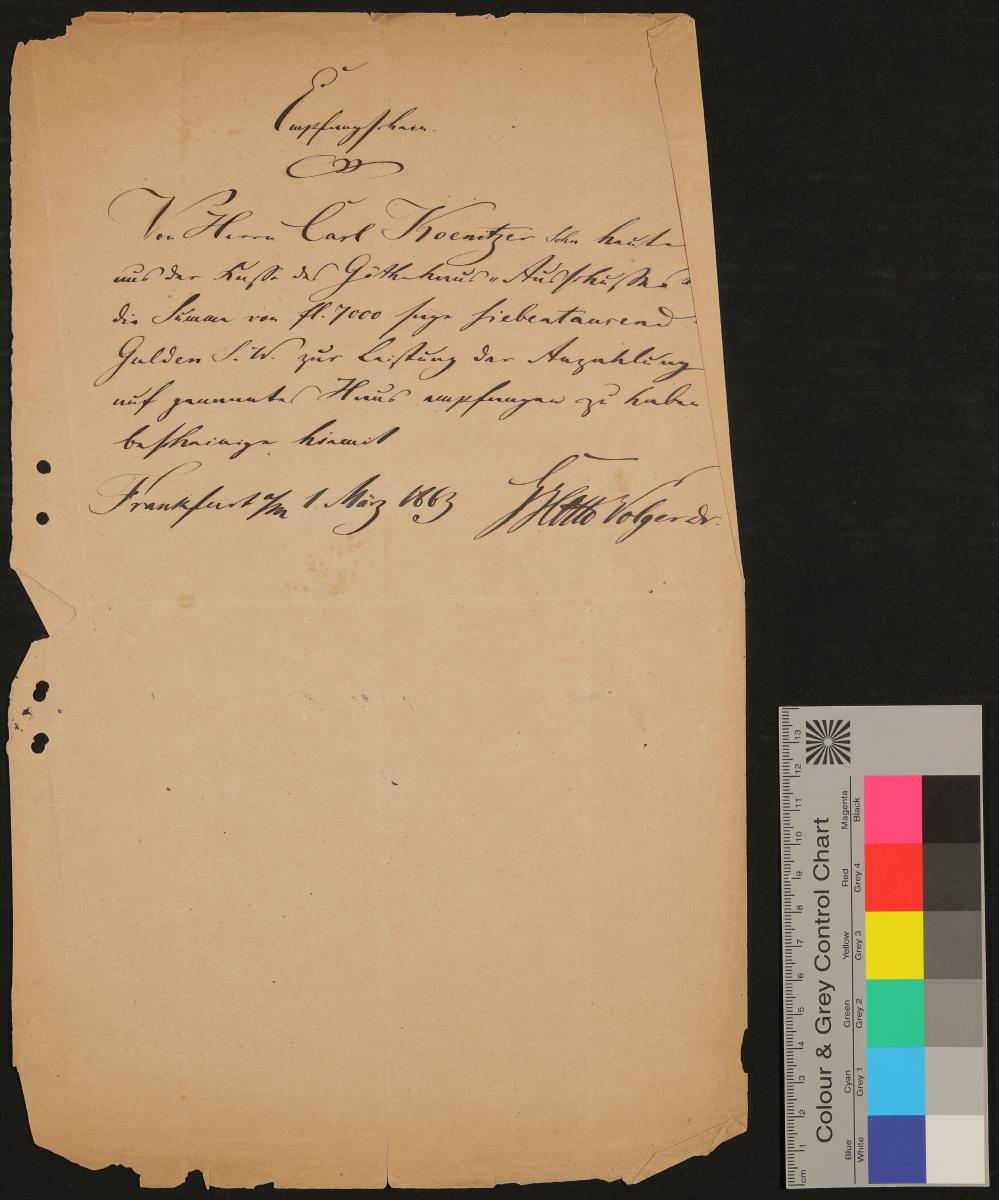 Empfangschein.
Von Herrn Carl Koenitzer Sohn heute
aus der Kasse des Göthehaus-„Ausschusses“
die Summe von fl. 7000 sage siebentausend
Gulden S. W. zur Leistung der Anzahlung
auf genanntes Haus empfangen zu haben
bescheinige hiemit
Frankfurt a/M 1. März 1863 GHOtto Volger Dr.
Colour & Grey Control Chart
Blue Cyan Green Yellow Red Magenta
White Grey 1 Grey 2 Grey 3 Grey 4 Black
cm 1 2 3 4 5 6 7 8 9 10 11 12 13